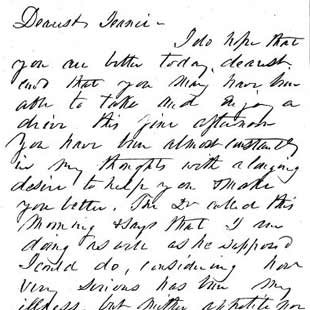 Dearest Fannie -
I do hope that
you are better today, dearest
and that you may have been
able to take and enjoy a
drive this fine afternoon
You have been almost constantly
in my thoughts with a longing
desire to help you & make
you better. The Dr called this
morning & says that I am
doing as well as he supposed
I could do, considering how
very serious has been my
illness, but neither appetite nor